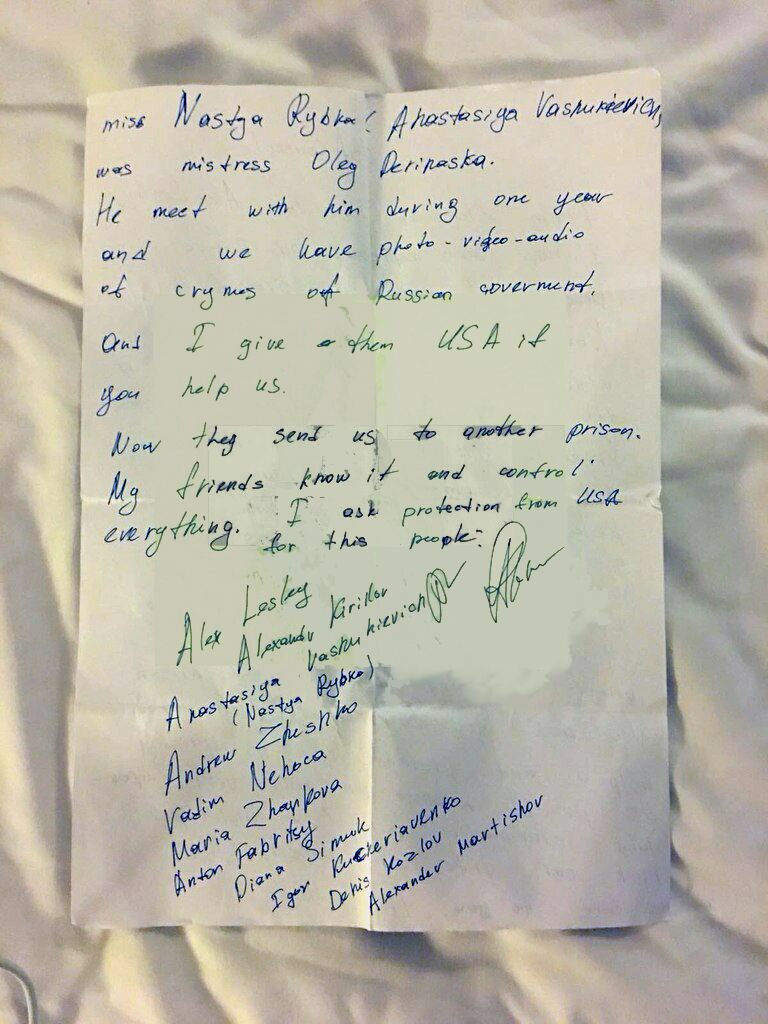 miss Nastya Rybka! Anastasiya Vashukievich,
was mistress Oleg Deripaska.
He meet with him during one year
and we have photo-video-audio
of crymes of Russian goverment.
and I give them USA if
you help us.
Now they send us to another prison.
My friends know it and control
everything. I ask protection from USA
for this people:
Alex Lesley
Alexandr Kirillov
Anastasiya Vashukievich
(Nastya Rybka)
Andrew Zheshko
Vadim Nehoca
Maria Zharkova
Anton Fabritsy
Diana Simuk
Igor
Denis Kozlov
Alexander Martishov